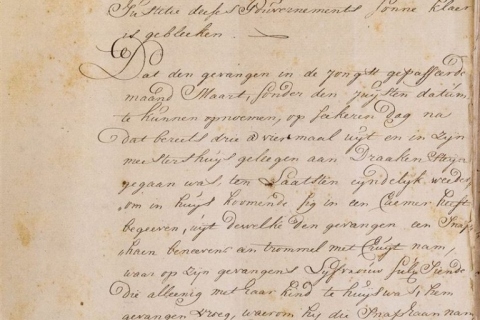 Justitie deeses Gouvernements sonne klaer
is gebleeken.
Dat den gevangen in de jongst gepasseerde
maand Maart, sonder den juijsten datum
te kunnen opnoemen, op sekeren dag na
dat bereets drie a vier maal uijt en in zijn
meesters huijs geleegen aan Draaken steijn
gegaan was, ten laatsten eijndelijk weeder
om in huijs koomende sig in een Camer heeft
begeeven, uijt dewelke den gevangen een Snap
haan beneevens een trommel met Cruijt nam,
waar op zijn gevangens Lijfvrouw sulx siende
die alleenig met haar kind te huijs was, hem
gevangen vroeg, waarom hij die Snaphaan nam